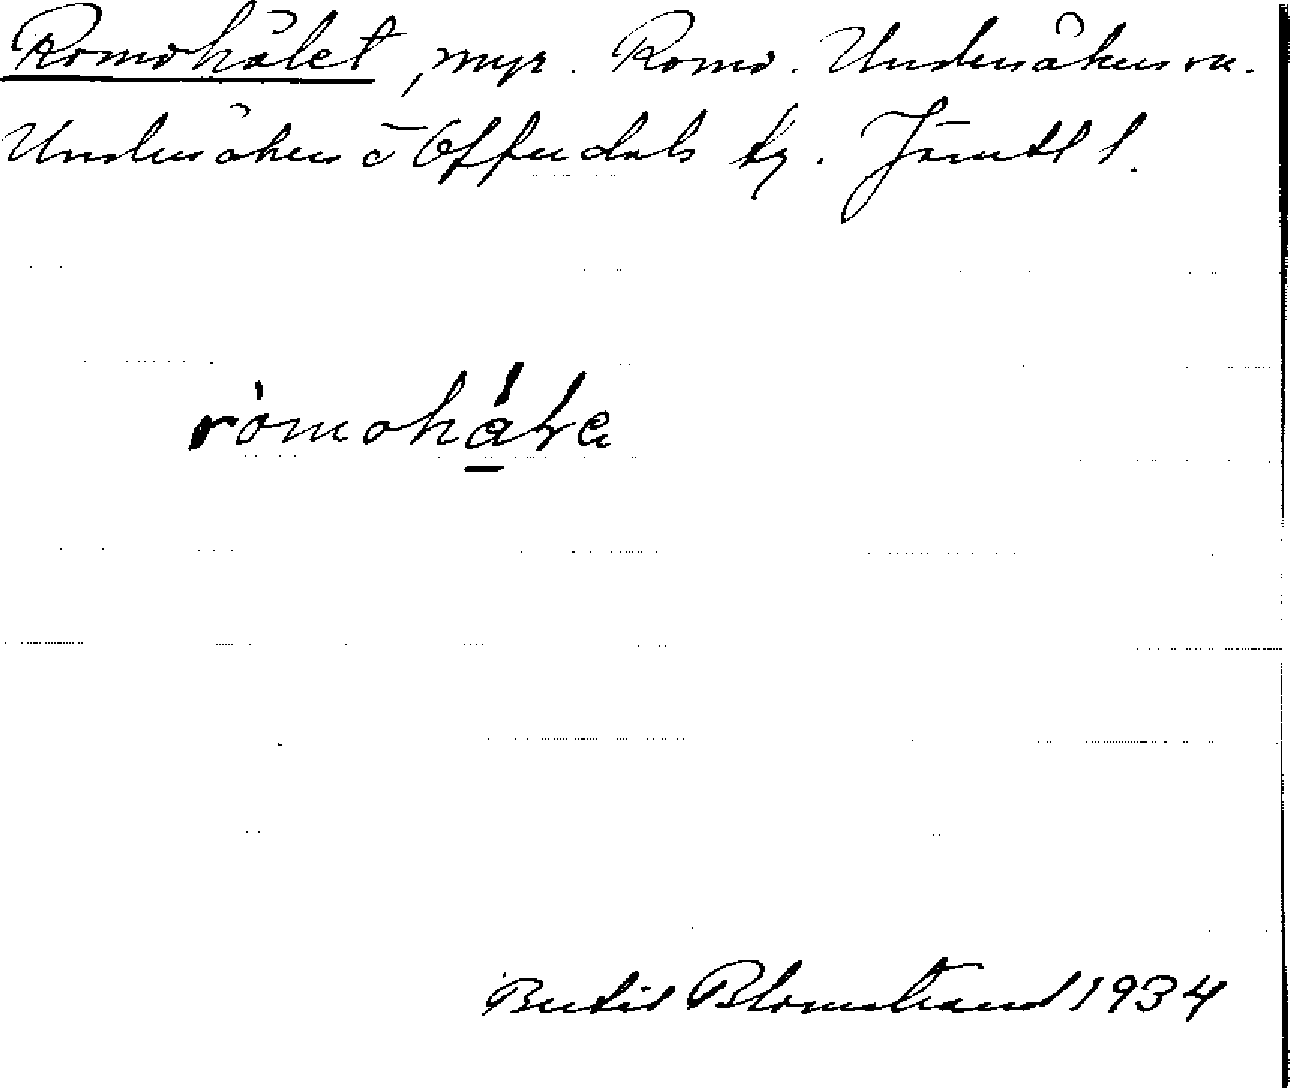 Romohålet, myr. Romo. Undersåkers sn.
Undersåkers o Offerdals tg. Jämtl l.
ròmohálę
Bertil Blomstrand 1934